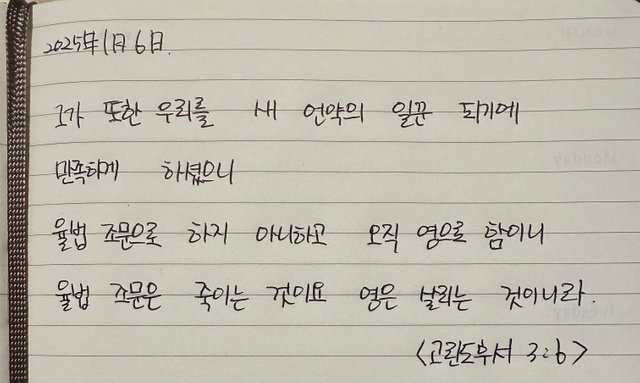 2025年1月6日.
그가 또한 우리를 새 언약의 일꾼 되기에
만족하게 하셨으니
율법 조문으로 하지 아니하고 오직 영으로 함이니
율법 조문은 죽이는 것이요 영은 살리는 것이니라.
<고린도후서 3:6>
Monday
Tuesday